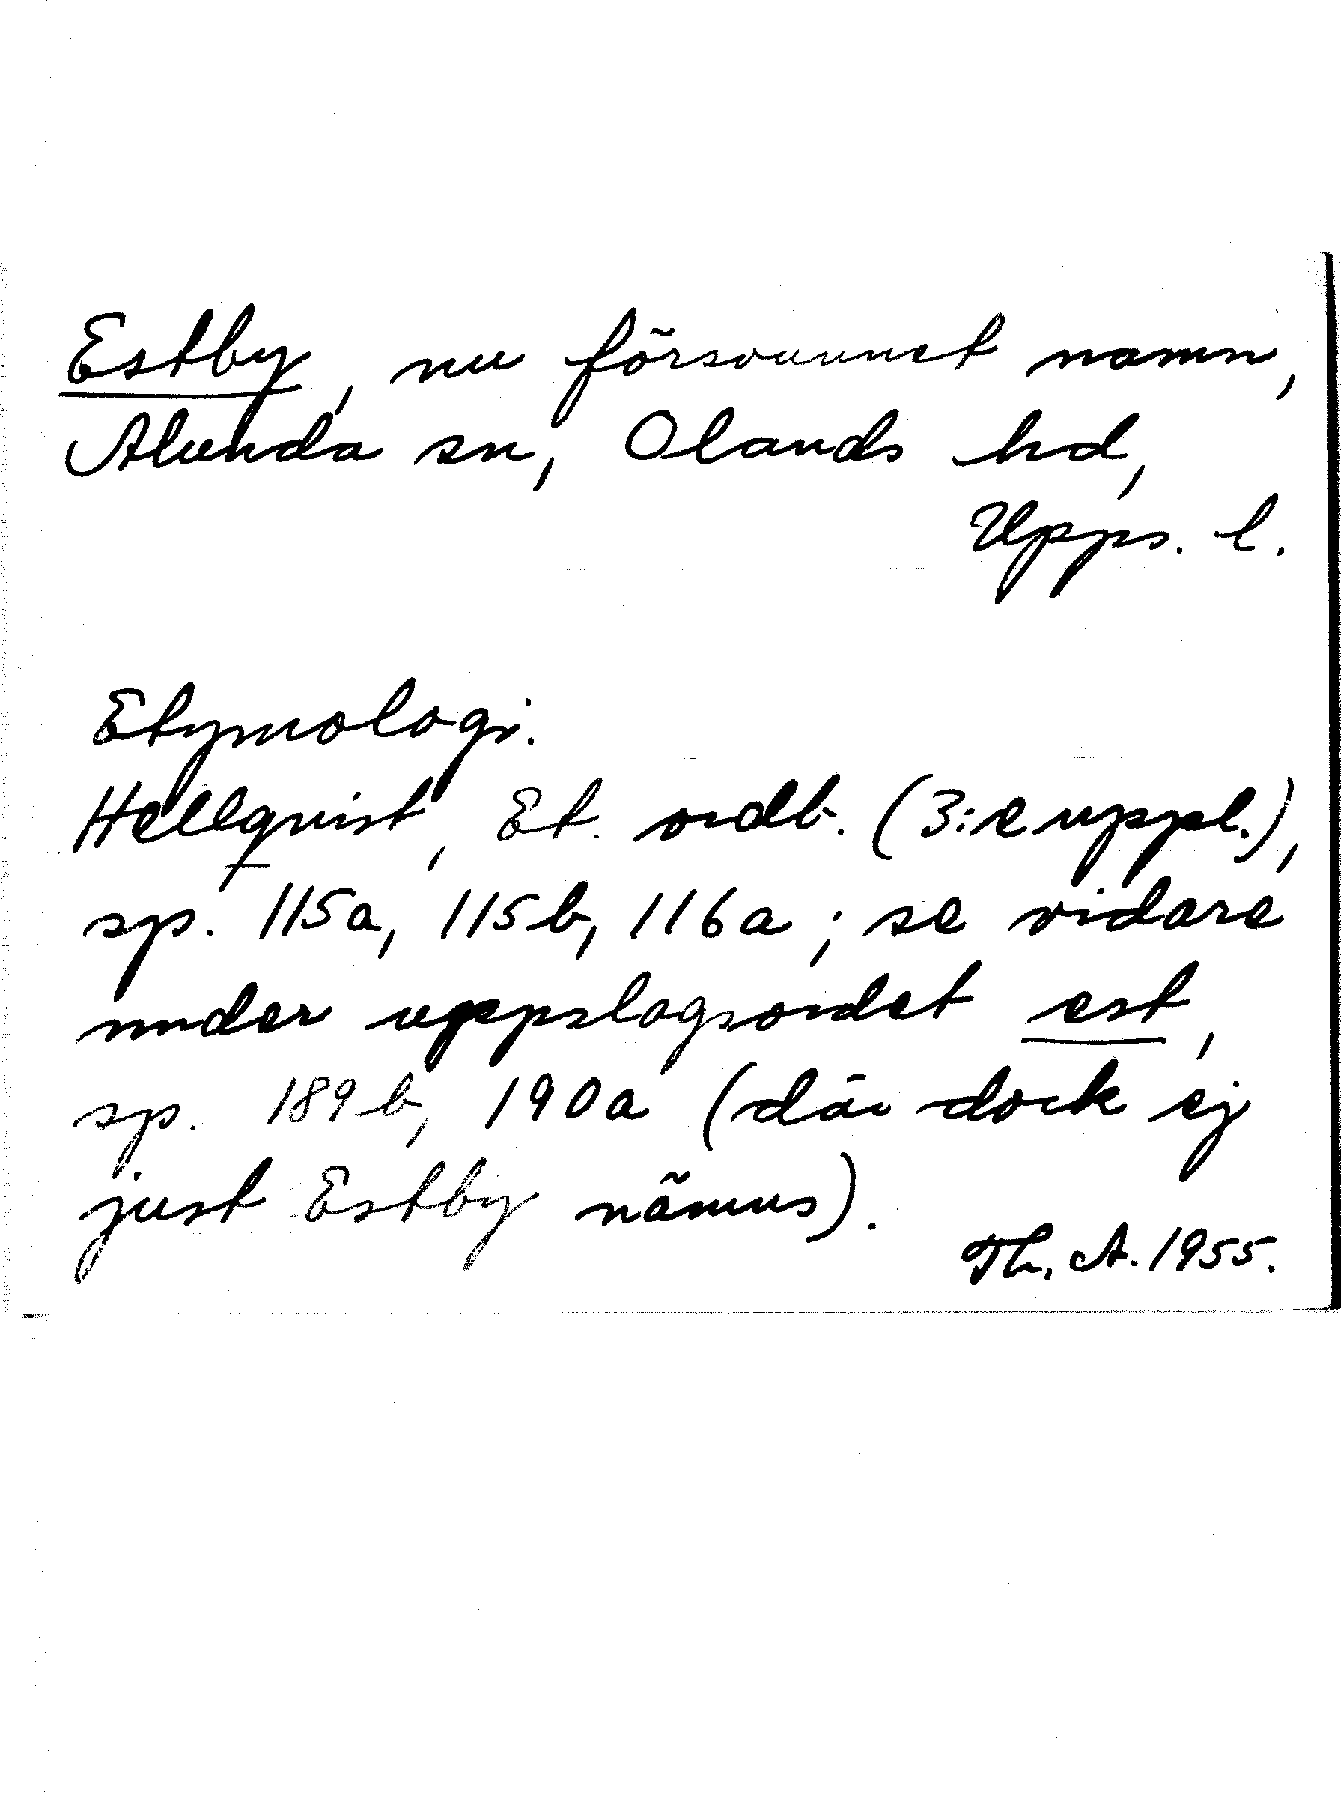 Estby, nu försvunnet namn,
Alunda sn, Olands hd,
Upps. l.
Etymologi.
Hellquist, Et. ordb. (3:e uppl.),
sp. 115a, 115b, 116a; se vidare
under uppslagsordet est,
sp. 189b, 190a (där dock ej
just Estby nämns).
Th. A. 1955.